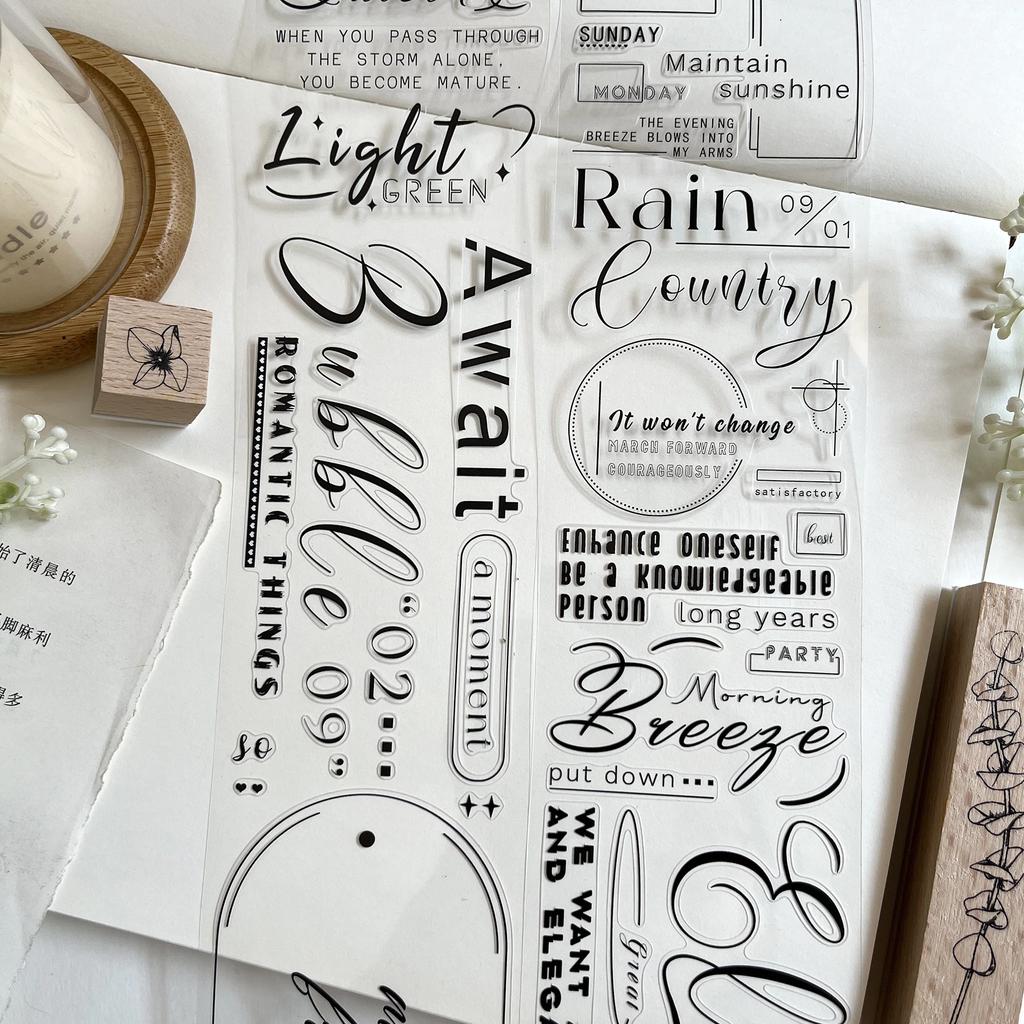 WHEN YOU PASS THROUGH
THE STORM ALONE,
YOU BECOME MATURE.
Light
GREEN
Bubble
"02...
09"
Await
a moment
ROMANTIC THINGS
so
SUNDAY
MONDAY
Maintain
sunshine
THE EVENING
BREEZE BLOWS INTO
MY ARMS
Rain 09/01
Country
It won't change
MARCH FORWARD
COURAGEOUSLY
satisfactory
best
Enhance oneself
Be a knowledgeable
person
long years
PARTY
Morning
Breeze
put down...
WE WANT
AND
Great
dle
始了清晨的
脚麻利
得多